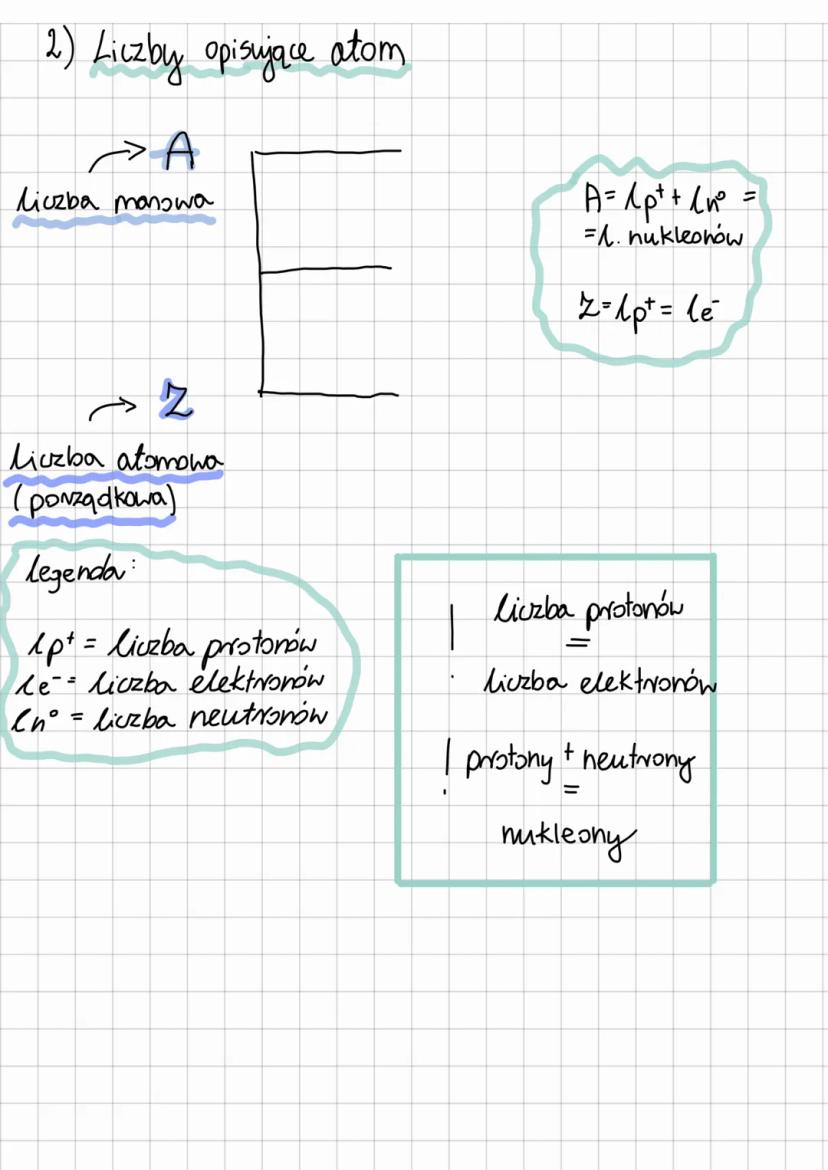 2) Liczby opisujące atom
A
liczba masowa
E
A = lp⁺ + ln⁰ =
= l. nukleonów
Z = lp⁺ = le⁻
Z
liczba atomowa
(porządkowa)
legenda:
lp⁺ = liczba protonów
le⁻ = liczba elektronów
ln⁰ = liczba neutronów
! liczba protonów
=
liczba elektronów
! protony + neutrony
=
nukleony